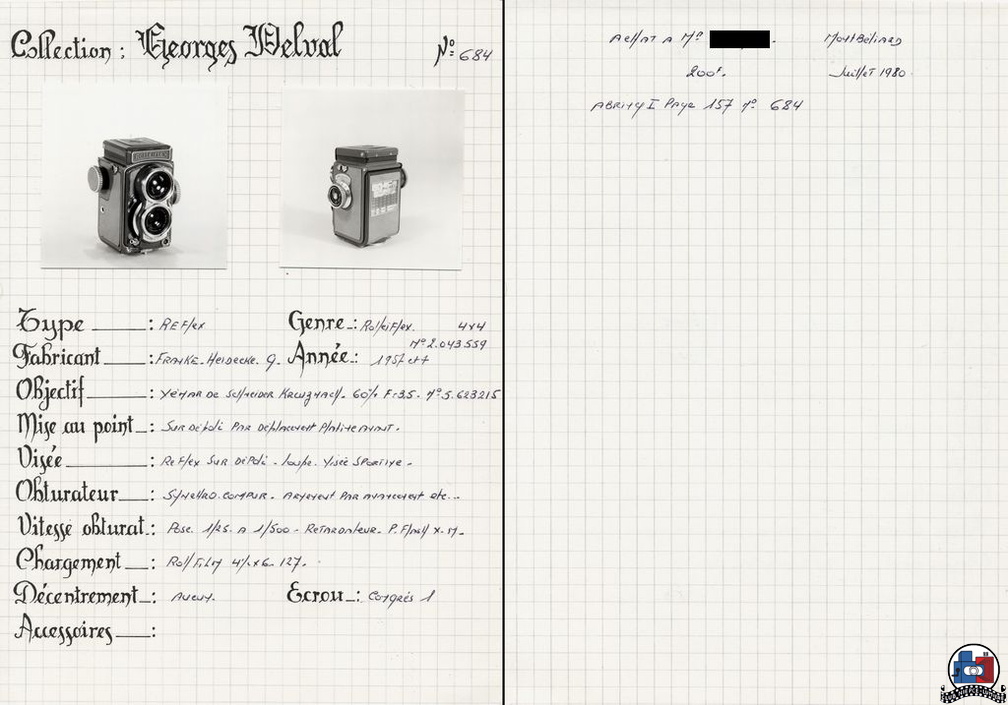 Collection : Georges Delval
N° 684
Type : REFlex
Genre : RolleiFlex. 4x4
N° 2.043559
Fabricant : FRANKE. HEIDECKE. G.
Année : 1957 et +
Objectif : XÉNAR DE SCHNEIDER KREUZNACH. 60m/m F:3,5. N° 5.623215
Mise au point : SUR DÉPOLI PAR DÉPLACEMENT PLATINE AVANT.
Visée : REFlex SUR DÉPOLI. loupe. VISÉE SPORTIVE.
Obturateur : SYNCHRO.COMPUR. ARMEMENT PAR AVANCEMENT etc...
Vitesse obturat. : Pose. 1/25. A 1/500 - RETARDATEUR. P. Flash X.M.
Chargement : Roll Film 4x6. 127.
Décentrement : AUCUN.
Ecrou : Congrès 1
Accessoires :
ACHAT A Mr
MONTBÉLIARD
200F.
Juillet 1980
ABRING I Page 157 N° 684